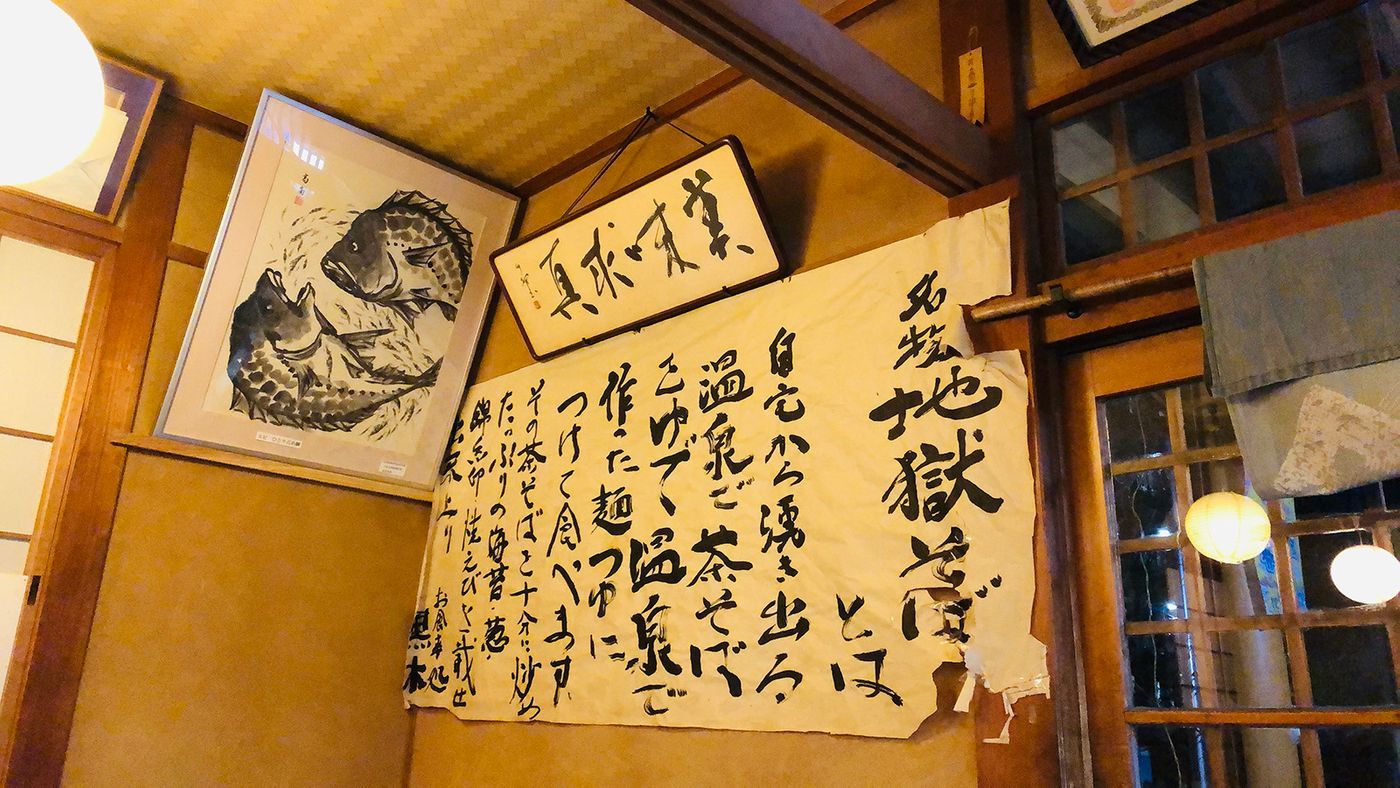 美味求真
名物地獄そば
とは
自宅から湧き出る
温泉で茶そば
をゆでて温泉で
作った麺つゆに
つけて食べます
その茶そばを十分に炒め
たっぷりの海苔・葱・
錦糸卵 焼えびを載せ
出来上り
お食事処
黒木